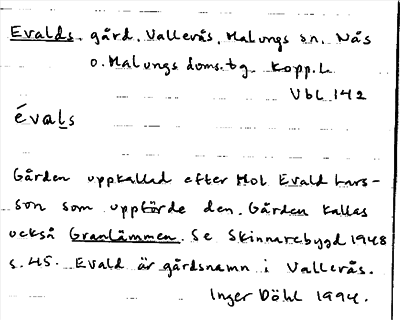 Evalds, gård, Vallerås, Malungs sn, Nås
o. Malungs doms.bg. Kopp.l.
Vbl 142
évaḷs
Gården uppkallad efter Mol Evald Lars-
son som uppförde den. Gården kallas
också Granlämmen. Se Skinnarebygd 1948
s. 45. Evald är gårdsnamn i Vallerås.
Inger Döhl 1994.